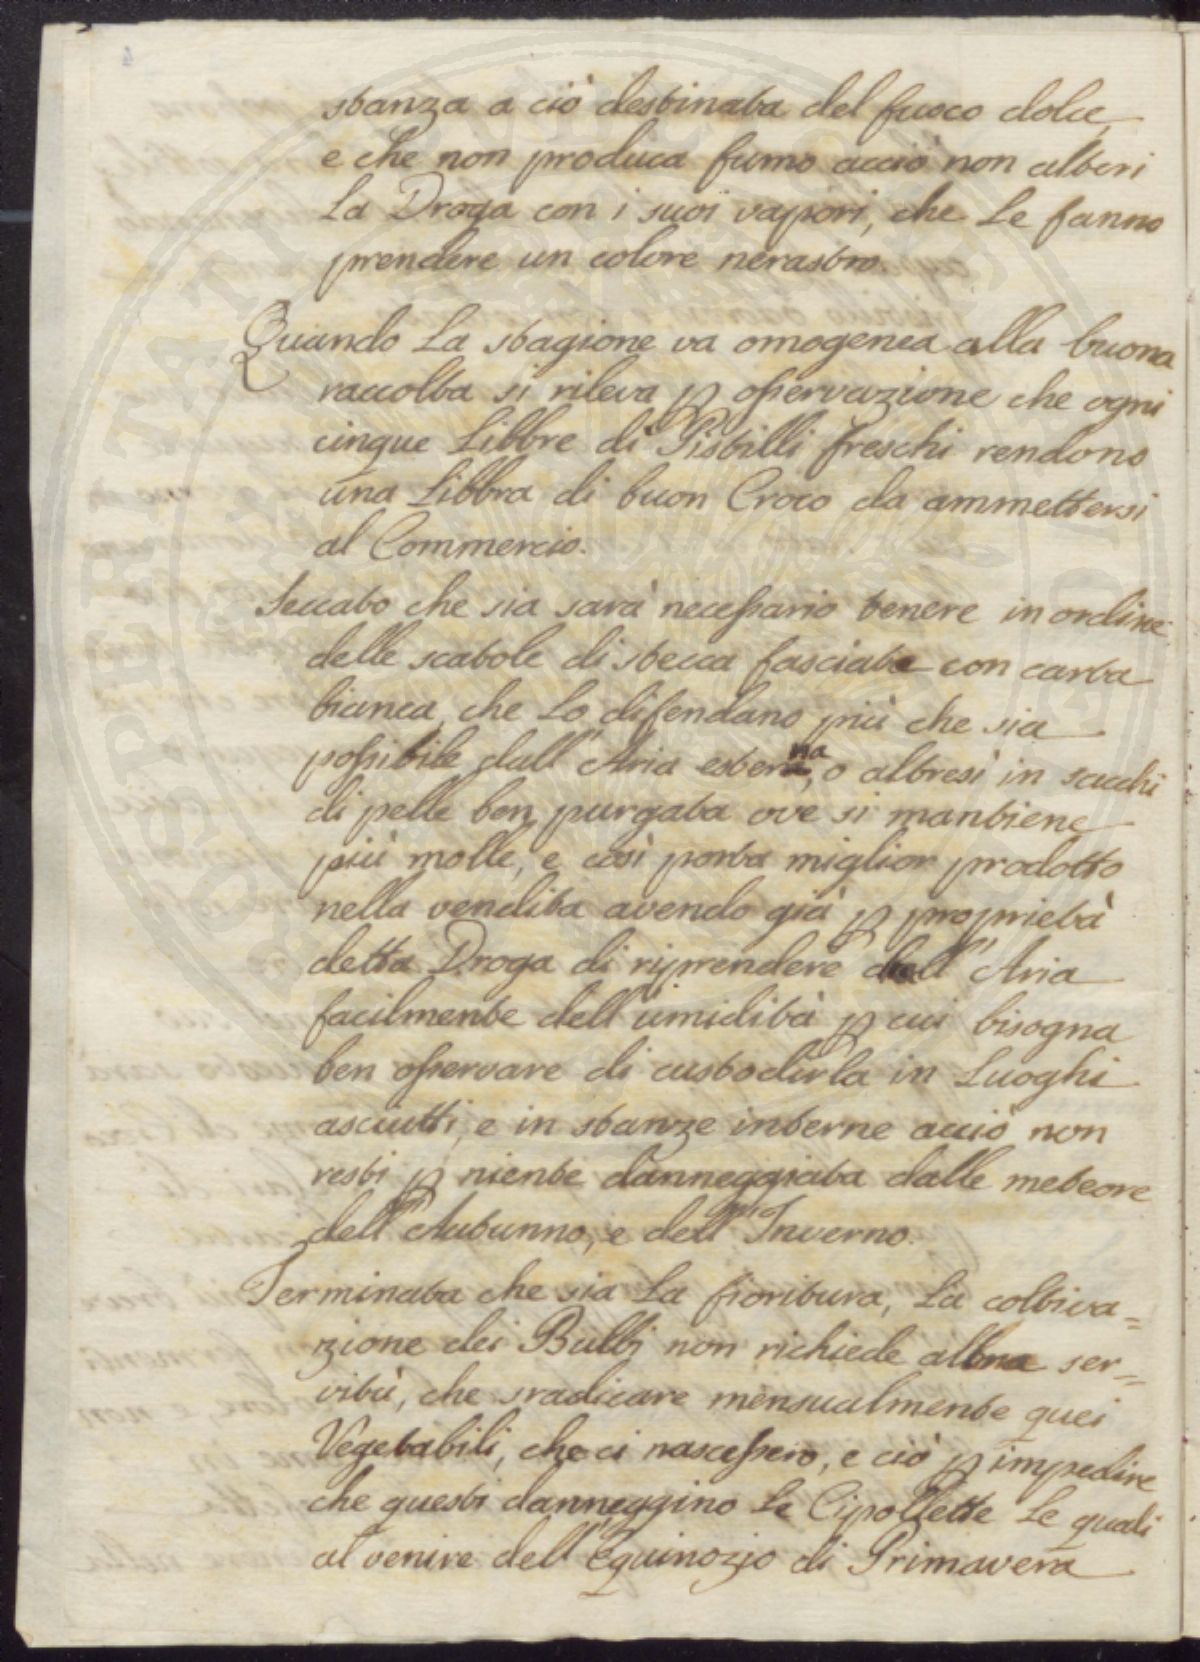 stanza a ciò destinata del fuoco dolce,
e che non produca fumo acciò non alteri
La Droga con i suoi vapori, che Le fanno
prendere un colore nerastro.
Quando La stagione va omogenea alla buona
raccolta si rileva p osservazione che ogni
cinque Libbre di Pistilli freschi rendono
una Libbra di buon Croco da ammettersi
al Commercio.
Seccato che sia sarà necessario tenere in ordine
delle scatole di stecca fasciate con carta
bianca, che Lo difendano più che sia
possibile dall'Aria esterna, o altresì in sacchi
di pelle ben purgata ove si mantiene
più molle, e così porta miglior prodotto
nella vendita avendo già p proprietà
detta Droga di riprendere dall'Aria
facilmente dell'umidità p cui bisogna
ben osservare di custodirla in Luoghi
asciutti, e in stanze interne acciò non
resti p niente danneggiata dalle meteore
dell'Autunno, e dell'Inverno.
Terminata che sia La fioritura, La coltiva=
zione dei Bulbi non richiede altra ser=
vitù, che sradicare mensualmente quei
Vegetabili, che ci nascessero, e ciò p impedire
che questi danneggino Le Cipollette Le quali
al venire dell'Equinozio di Primavera